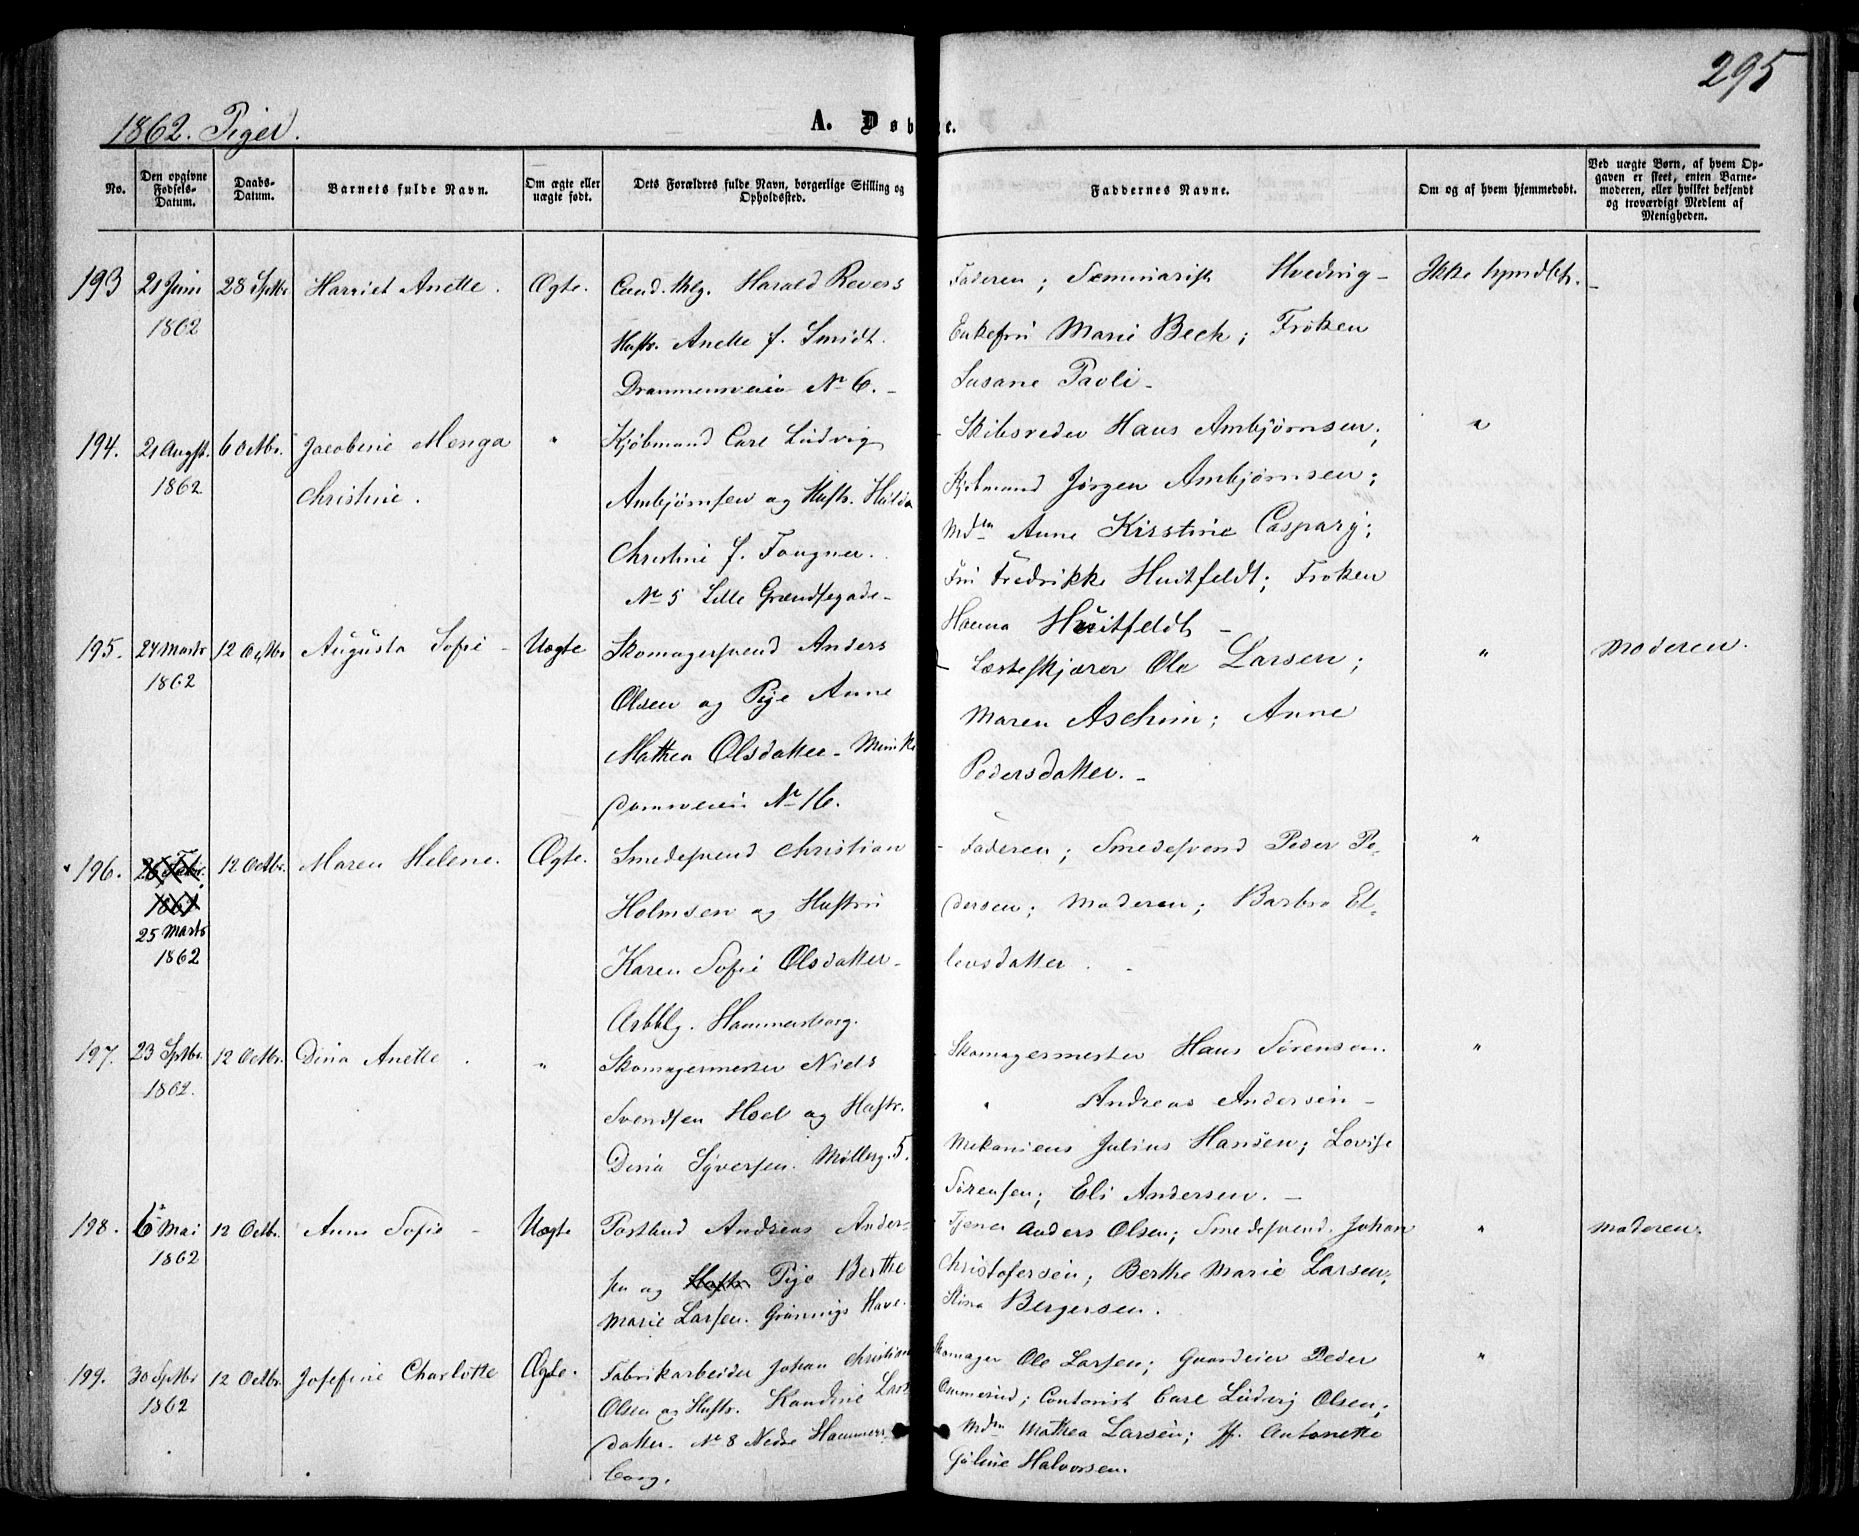 295
1862. Piger.
A. Døbte.
No.
Den opgivne Fødsels-Datum.
Daabs-Datum.
Barnets fulde Navn.
Om ægte eller uægte født.
Dets Forældres fulde Navn, borgerlige Stilling og Opholdssted.
Faddernes Navne.
Om og af hvem hjemmedøbt.
Ved uægte Børn, af hvem Opgaven er skeet, enten Barnemoderen, eller hvilket bekjendt og troværdigt Medlem af Menigheden.
193 21 Juni 28 Sptbr Harriet Anette. Ægte. Cand. thlg. Harald Revers Faderen; Seminarist Hvedvig - Ikke hjmdbt.
1862 Hustr. Anette f. Smidt. Enkefru Marie Bech; Frøken
Drammensveien No 6. - Susane Pavli -
194. 21 Augst. 6 Octbr. Jacobine Menga " Kjøbmand Carl Ludvig Skibsreder Hans Ambjørnsen; "
1862 Christine. Ambjørnsen og Hustr. Hulda Kjøbmand Jørgen Ambjørnsen;
Christine f. Fougner. Mdm Anne Kirstine Caspary;
No 5 Lille Grændsegade - Fru Fredrikke Huitfeldt; Frøken
Hanna Huitfeldt -
195. 24 Marts 12 Octbr Augusta Sofie - Uægte Skomagersvend Anders Læsteskjærer Ole Larsen; " Moderen.
1862 Olsen og Pige Anne Maren Aschim; Anne
Mathea Olsdatter - Munke Pedersdatter. -
damsveien No 16.
196. 26 Febr. 12 Octbr. Maren Helene. Ægte. Smedesvend Christian Faderen; Smedesvend Peder Pe- "
1861 Holmsen og Hustru dersen; Moderen; Barbro El-
25 Marts Karen Sofie Olsdatter - levsdatter.
1862 Arbblg. Hammersborg.
197. 23 Sptbr. 12 Octbr. Dina Anette. " Skomagermester Niels Skomagermester Hans Sørensen. "
1862. Svendsen Hoel og Hustr. " Andreas Andersen -
Dina Syversen. Møllerg. 5. Mekanicus Julius Hansen; Lovise
Sørensen; Eli Andersen. -
198. 6 Mai 12 Octbr. Anne Sofie - Uægte Postbud Andreas Ander- Tjener Anders Olsen; Smedesvend Johan " Moderen.
1862 sen og Hustr Pige Berthe Christofersen; Berthe Marie Larsen;
Marie Larsen. Grønnings Have. Stina Bergersen.
199. 30 Sptbr 12 Octbr. Josefine Charlotte Ægte. Fabrikarbeider Johan Christian Skomager Ole Larsen; Gaardeier Peder "
1862 Olsen og Hustr. Kandine Lars Ommerud; Contorist Carl Ludvig Olsen;
datter. No 8 Nedre Hammers Mdm Mathea Larsen; Jf. Antonette
borg. Juline Halvorsen.